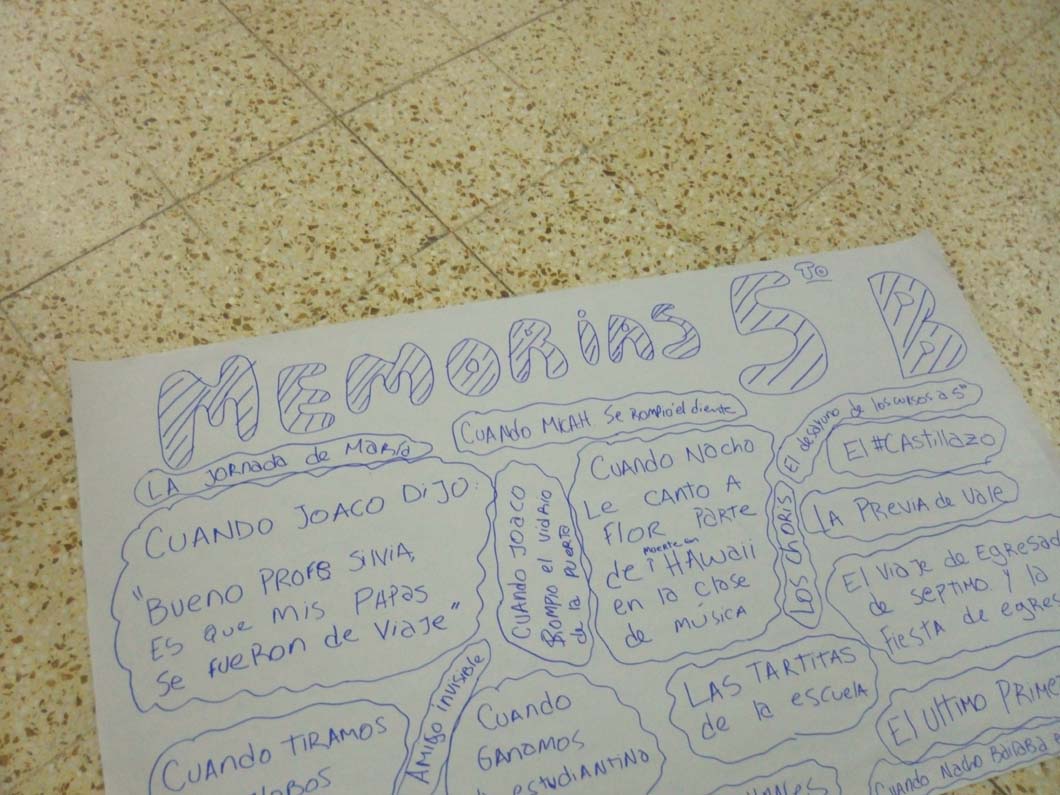 MEMORIAS 5to B
LA JORNADA de MARÍA
CUANDO MICAH Se ROMPIO el diente
El desayuno de los cursos a 5º
El #CAStillazo
CUANDO JOACO DIJO:
"BUENO PROFE SILVIA,
ES QUE MIS PAPAS
Se FUERON de VIAJE"
CUANDO JOACO
ROMPIO el VIDRIO
de la PUERTA
CUANDO NACHO
Le CANTO A
FLOR PARTE
de "muerte en
HAWAII
en la clase
de MÚSICA
LOS CHORIS
LA PREVIA de Vale
El VIAJE de EgRESAD
de SEPTIMO y la
FIESTA de EgRES
AMIGO INVISIBLE
CUANDO TIRAMOS
CUANDO
GANAMOS
eSTUDIANTINA
LAS TARTITAS
de la escuela
El ULTIMO PRIME
CUANDO NACHO BAILABA